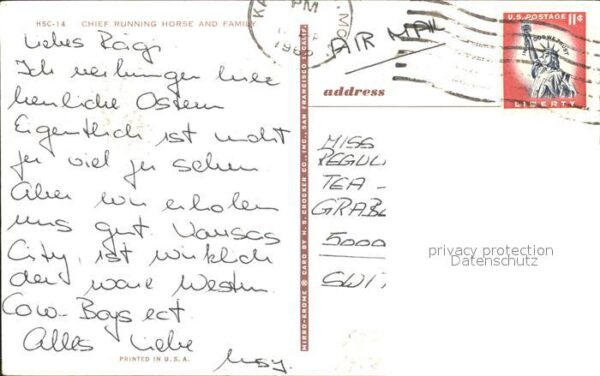 HSC-14 CHIEF RUNNING HORSE AND FAMILY
Liebes Rägi
Ich verbringe hier
herrliche Ostern
Eigentlich ist nicht
zu viel zu sehen.
Aber wir erholen
uns gut. Kansas
City, ist wirklich
der ware Western
Cow-Boys ect.
Alles Liebe
PRINTED IN U.S.A.
MIRRO-KROME ® CARD BY H. S. CROCKER CO., INC., SAN FRANCISCO 1, CALIF.
PM
MO.
AIR MAIL
U.S. POSTAGE 11¢
IN GOD WE TRUST
LIBERTY
address
MISS
REGUL
TEA -
GRABE
5000
SWIT
privacy protection
Datenschutz